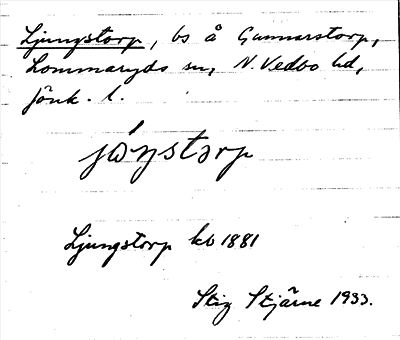 Ljungstorp, bs å Gunnarstorp,
Lommaryds sn, N. Vedbo hd,
Jönk. l.
Ljungstorp kb 1881
Stig Stjärne 1933.